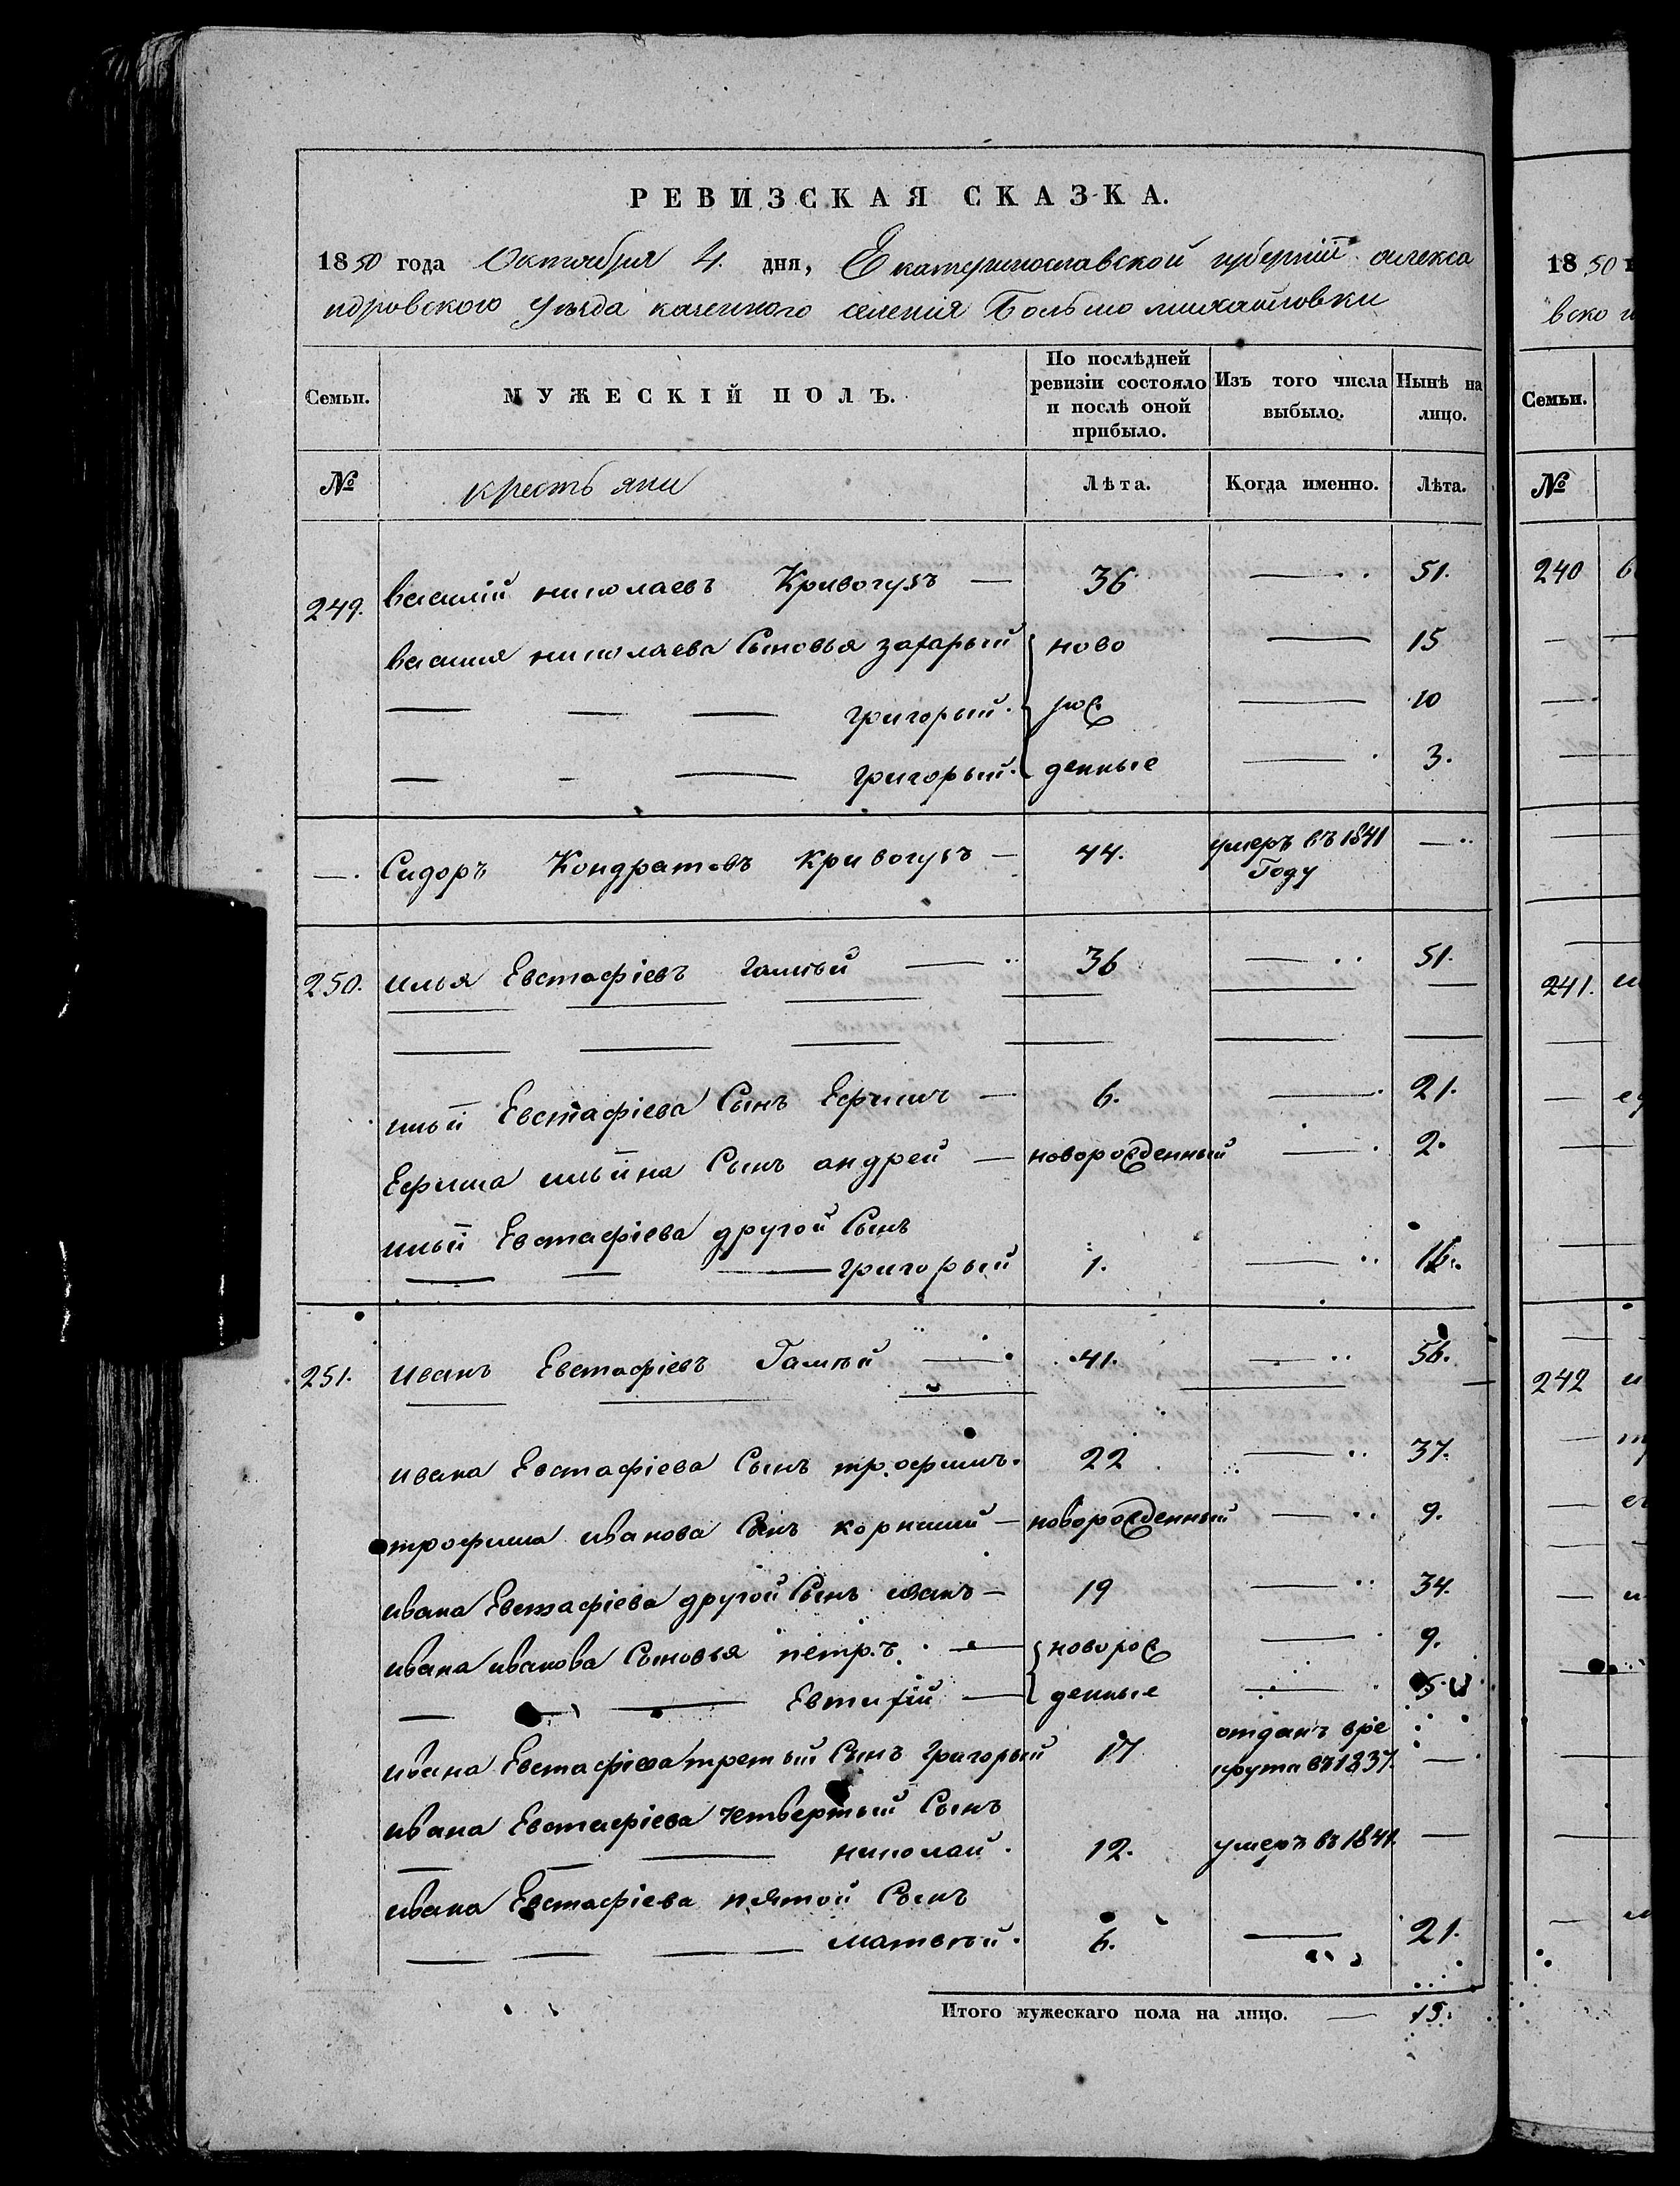 РЕВИЗСКАЯ СКАЗКА.
1850 года Октября 4. дня, Екатеринославской губерніи алекса
ндровского Уезда казенного селенія Больмо михайловки
Семьи. МУЖЕСКІЙ ПОЛЪ. По послѣдней ревизіи состояло и послѣ оной прибыло. Изъ того числа выбыло. Нынѣ на лицо.
№ крестьяни Лѣта. Когда именно. Лѣта.
249. василій николаевъ Кривогузъ — 36 — 51.
василия николаева Сыновья захарый ново — 15
— — — григорый. рож — 10
— — — григорый. денные — 3.
—. Сидоръ Кондратовъ кривогузъ — 44. умеръ въ 1841 —
Году
250. илья Евстафіевъ галий — 36 — 51.
ильи Евстафіева Сынъ Ефимъ — 6. — 21.
Ефима ильина Сынъ андрей — новорожденный — 2.
ильи Евстафіева другой Сынъ
— — — григорый 1. — 16.
251. иванъ Евстафіевъ — 41. — 56.
ивана Евстафіева Сынъ трофимъ. 22 — 37.
трофима иванова Сынъ корнилий — новорожденный — 9.
ивана Евстафіева другой Сынъ иванъ — 19 — 34.
ивана иванова Сыновья петръ. — новорож — 9.
— — — Евтихій — денные — 5.
ивана Евстафіева третьий Сынъ григорый 17 отданъ вре
крута въ 1837. —
ивана Евстафіева четвертый Сынъ
— — — николай. 12. умеръ въ 1841. —
ивана Евстафіева пятой Сынъ
— — — матвей. 6. — 21.
Итого мужескаго пола на лицо. — 15.
1850
вско
Семьи.
№
240
241.
242